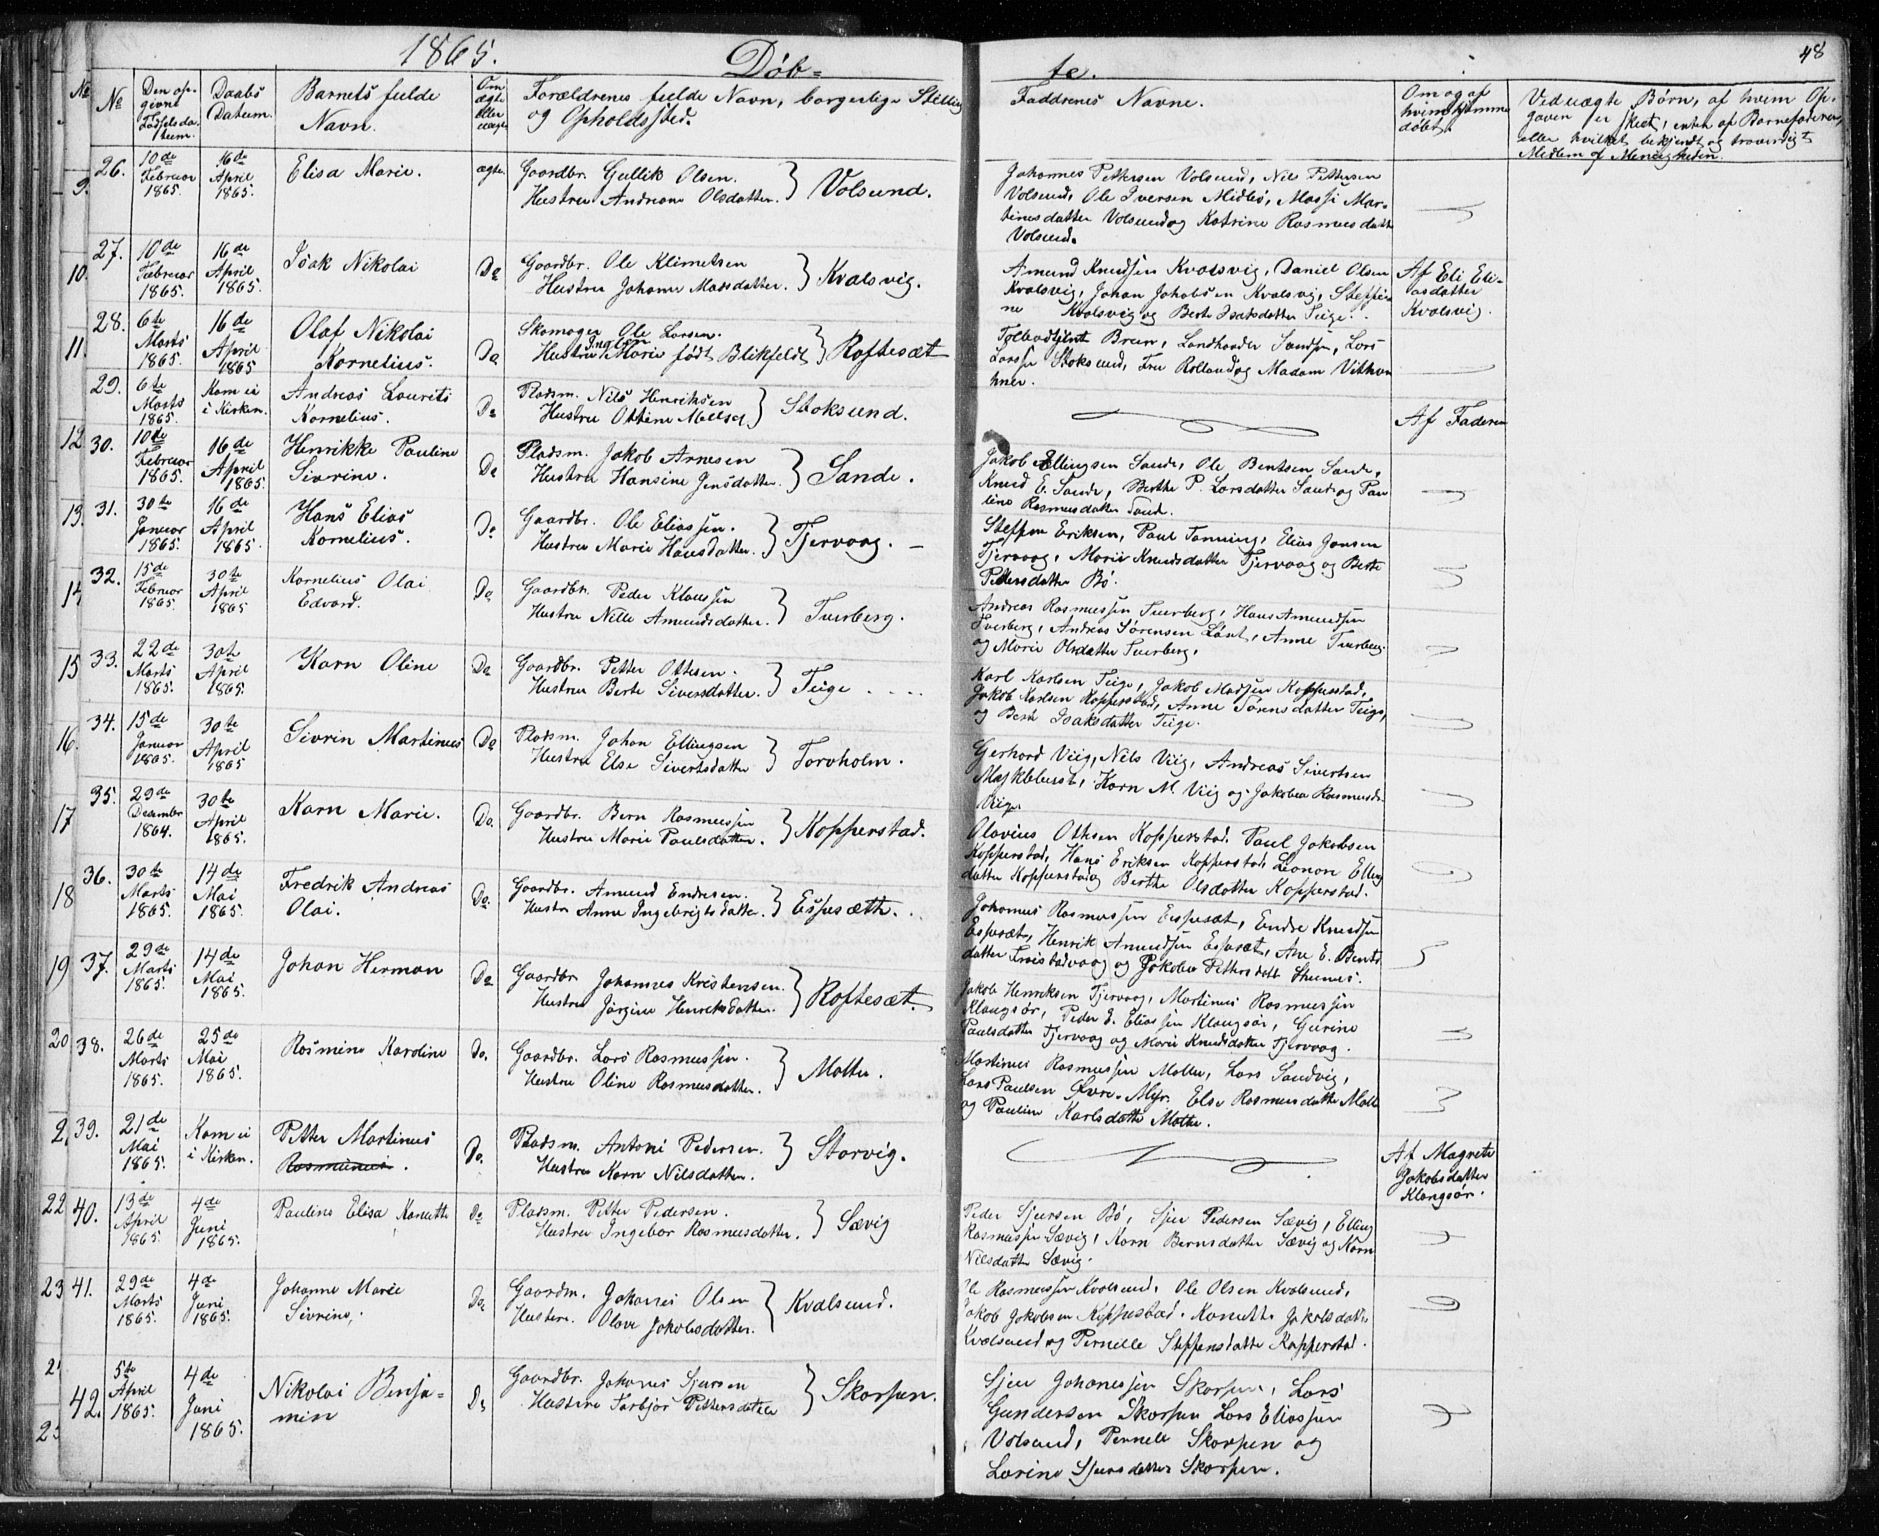 1865. Døb= te. 48
№ Den opgivne Fødselsdatum. Daabs Datum. Barnets fulde Navn. Om ægte eller uægte Forældrenes fulde Navn, borgerlige Stilling og Opholdssted. Faddrenes Navne. Om og af hvem hjemmedøbt. Ved uægte Børn, af hvem Opgaven er skeet, enten af Barnefaderen, eller hvilket bekjendt og troværdigt Medlem af Menigheden.
26. 10de Februar 1865. 16de April 1865. Elisa Marie. ægte. Gaardbr. Gullik Olsen.
Hustru Andreane Olsdatter. } Volsund.
Johannes Pettersen Volsund, Nils Pettersen
Volsund, Ole Iversen Midbø, Massi Mar-
tinusdatter Volsund og Katrine Rasmusdatter
Volsund.
27. 10de Februar 1865. 16de April 1865. Isak Nikolai Do Gaardbr. Ole Klimetsen
Hustru Johanne Madsdatter. } Kvalsvig.
Amund Knudsen Kvalsvig, Daniel Olsen
Kvalsvig, Johan Jakobsen Kvalsvig, Steffi-
ne Kvalsvig og Berte Isaksdatter Teige.
Af Eli Eli-
asdatter
Kvalsvig.
28. 6te Marts 1865. 16de April 1865 Olaf Nikolai
Kornelius. Do Skomager Ole Larsen.
Hustru Marie født Blikfeldt } Røftesæt
Toldbetjent Brun, Landhandler Sandsen, Lars
Larsen Stoksund, Fru Rolland og Madam
29. 6te Marts 1865. Kom ei i Kirken. Andreas Laurits
Kornelius. Do Pladsm. Nils Henriksen
Hustru Ottine } Stoksund.
Af Faderen
30. 10de Februar 1865. 16de April 1865. Henrikke Pauline
Sivrine. Do Pladsm. Jakob Arnesen
Hustru Hansine Jensdatter. } Sande.
Jakob Ellingsen Sande, Ole Bentsen Sande,
Knud E. Sande, Berthe P. Larsdatter Sande og Pau-
line Rasmusdatter Sand.
31. 30te Januar 1865. 16de April 1865. Hans Elias
Kornelius. Do Gaardbr. Ole Eliassen.
Hustru Marie Hansdatter. } Tjervaag.
Steffen Eriksen, Paul Tonning, Elias Jonsen
Tjervaag, Marie Knudsdatter Tjervaag og Berte
Pettersdatter Bø.
32. 15de Februar 1865. 30te April 1865 Kornelius Olai
Edvard. Do Gaardbr. Peder Klaussen
Hustru Nille Amundsdatter. } Tverberg.
Andreas Rasmussen Tverberg, Hans Amundsen
Tverberg, Andreas Sørensen Løset, Anne Tverberg
og Marie Olsdatter Tverberg.
33. 22de Marts 1865. 30te April 1865. Karn Oline Do Gaardbr. Petter Ottesen.
Hustru Berte Siversdatter. } Teige
Karl Karlsen Teige, Jakob Madsen Kopperstad,
Jakob Karlsen Kopperstad, Anne Tørensdatter Teige,
og Berte Isaksdatter Teige.
34. 15de Januar 1865. 30te April 1865 Sivrin Martinus Do Pladsm. Johan Ellingsen
Hustru Else Sivertsdatter } Torvholm.
Gerhard Viig, Nils Viig, Andreas Sivertsen
Myklebust, Karn M. Viig og Jakobea Rasmusd.
Viig.
35. 29de December 1864. 30te April 1865. Karn Marie. Do. Gaardbr. Bern Rasmussen
Hustru Marie Paulsdatter. } Kopperstad.
Olavius Ottesen Kopperstad. Paul Jakobsen
Kopperstad, Hans Eriksen Kopperstad, Leonon Elling
datter Kopperstad og Berthe Olsdatter Kopperstad.
36. 30te Marts 1865. 14de Mai 1865. Fredrik Andreas
Olai. Do. Gaardbr. Amund Endresen.
Hustru Anne Ingebrigtsdatter. } Espesæth.
Johannes Rasmussen Espesæt, Endre Knudsen
Espesæt, Henrik Amundsen Espesæt, Ane E. Bents
datter Frøistadvaag og Jakobea Pettersdatt.
37. 29de Marts 1865. 14de Mai 1865. Johan Herman Do Gaardbr. Johannes Kristensen.
Hustru Jørgine Henriksdatter. } Røftesæt.
Jakob Henriksen Tjervaag, Martinus Rasmussen
Klungsør, Peder E. Eliassen Klungsør, Gurine
Paulsdatter Tjervaag og Marie Knudsdatter Tjervaag.
38. 26de Marts 1865. 25de Mai 1865. Rasmine Karoline Do. Gaardbr. Lars Rasmussen.
Hustru Oline Rasmusdatter. } Molte.
Martinus Rasmussen Molte, Lars Sandvig,
Lars Paulsen Øvre-Myr. Else Rasmusdatter Molte
og Pauline Karlsdatter Molte.
39. 21de Mai 1865. Kom ei i Kirken. Petter Martinus
Rasmunus. Do. Pladsm. Antoni Pedersen.
Hustru Karn Nilsdatter. } Storvig.
Af Magrete
Jakobsdatter
Klungsør.
40. 13de April 1865 4de Juni 1865. Pauline Elisa Kanutte Do Pladsm. Petter Pedersen.
Hustru Ingebor Rasmusdatter. } Sævig
Peder Sjursen Bø, Sjur Pedersen Sævig, Elling
Rasmussen Sævig, Karn Bernsdatter Sævig og Karn
Nilsdatter Sævig.
41. 29de Marts 1865. 4de Juni 1865. Johanne Marie
Sivrine. Do. Gaardm. Johannes Olsen
Hustru. Olave Jakobsdatter. } Kvalsund.
Ole Rasmussen Kvalsund, Ole Olsen Kvalsund,
Jakob Jakobsen Kopperstad. Kanutte Jakobsdatter
Kvalsund og Pernille Steffensdatter Kopperstad.
42. 5te April 1865. 4de Juni 1865. Nikolai Benja-
min Do Gaardbr. Johannes Sjursen
Hustru Torbjør Pettersdatter } Skorpen.
Sjur Johanessen Skorpen, Lars
Gundersen Skorpen Lars Eliassen
Volsund, Pernelle Skorpen og
Lovine Sjursdatter Skorpen.